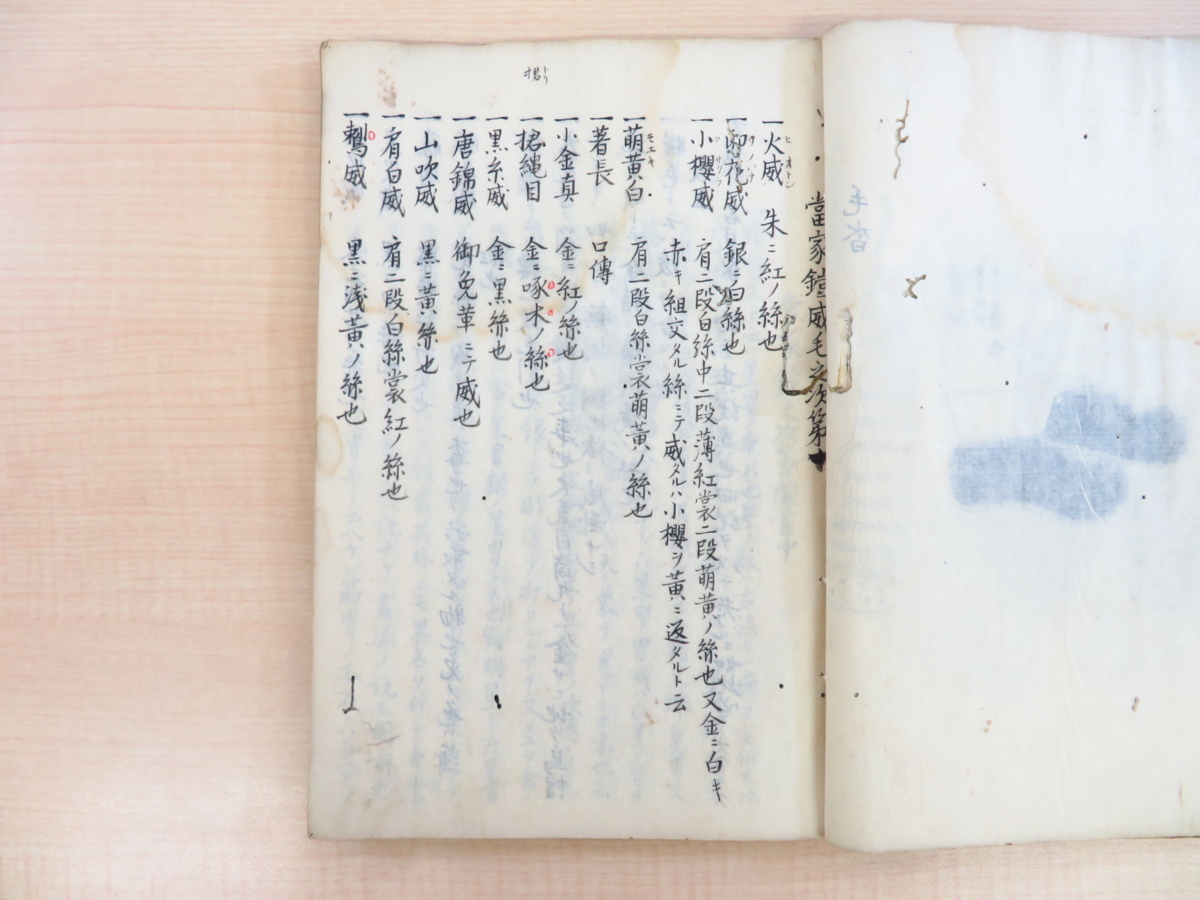 當家鎧威毛之次第
一火威 朱ニ紅ノ絲也
ヒオトシ
一卯花威 銀ニ白絲也
ウノハナ
一小櫻威 肩二段白絲中二段薄紅裳二段萌黄ノ絲也又金ニ白キ
赤キ組交タル絲ニテ威タルハ小櫻ヲ黄ニ返タルト云
一萌黄白 肩二段白絲裳萌黄ノ絲也
モエキ
一著長 口傳
一小金真 金ニ紅ノ絲也
一捃縄目 金ニ啄木ノ絲也
捃トリ
一黒糸威 金ニ黒絲也
一唐錦威 御免革ニテ威也
一山吹威 黒ニ黄絲也
一肩白威 肩二段白絲裳紅ノ絲也
一鵣威 黒ニ浅黄ノ絲也